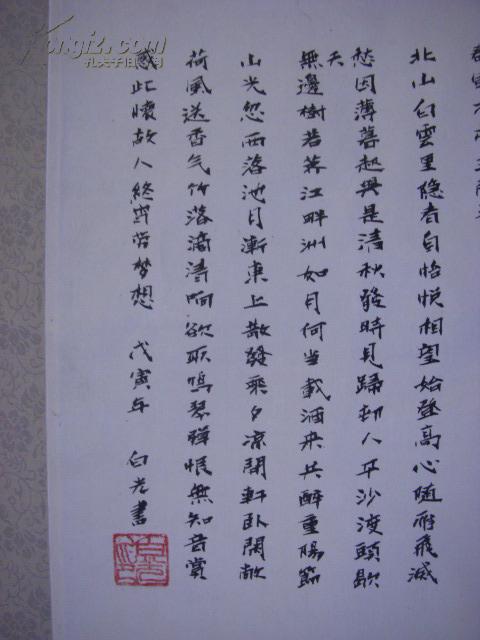 北山白雲里隐者自怡悦相望始登高心随雁飛滅
愁因薄暮起興是清秋發時見歸村人平沙渡頭歇
天
無邊樹若荠江畔洲如月何当載酒来共醉重陽節
山光忽西落池月漸東上散發乘夕凉開軒卧閑敞
荷風送香气竹落滴清响欲取鳴琴彈恨無知音賞
感此懷故人终宵劳梦想 戊寅年 白光書